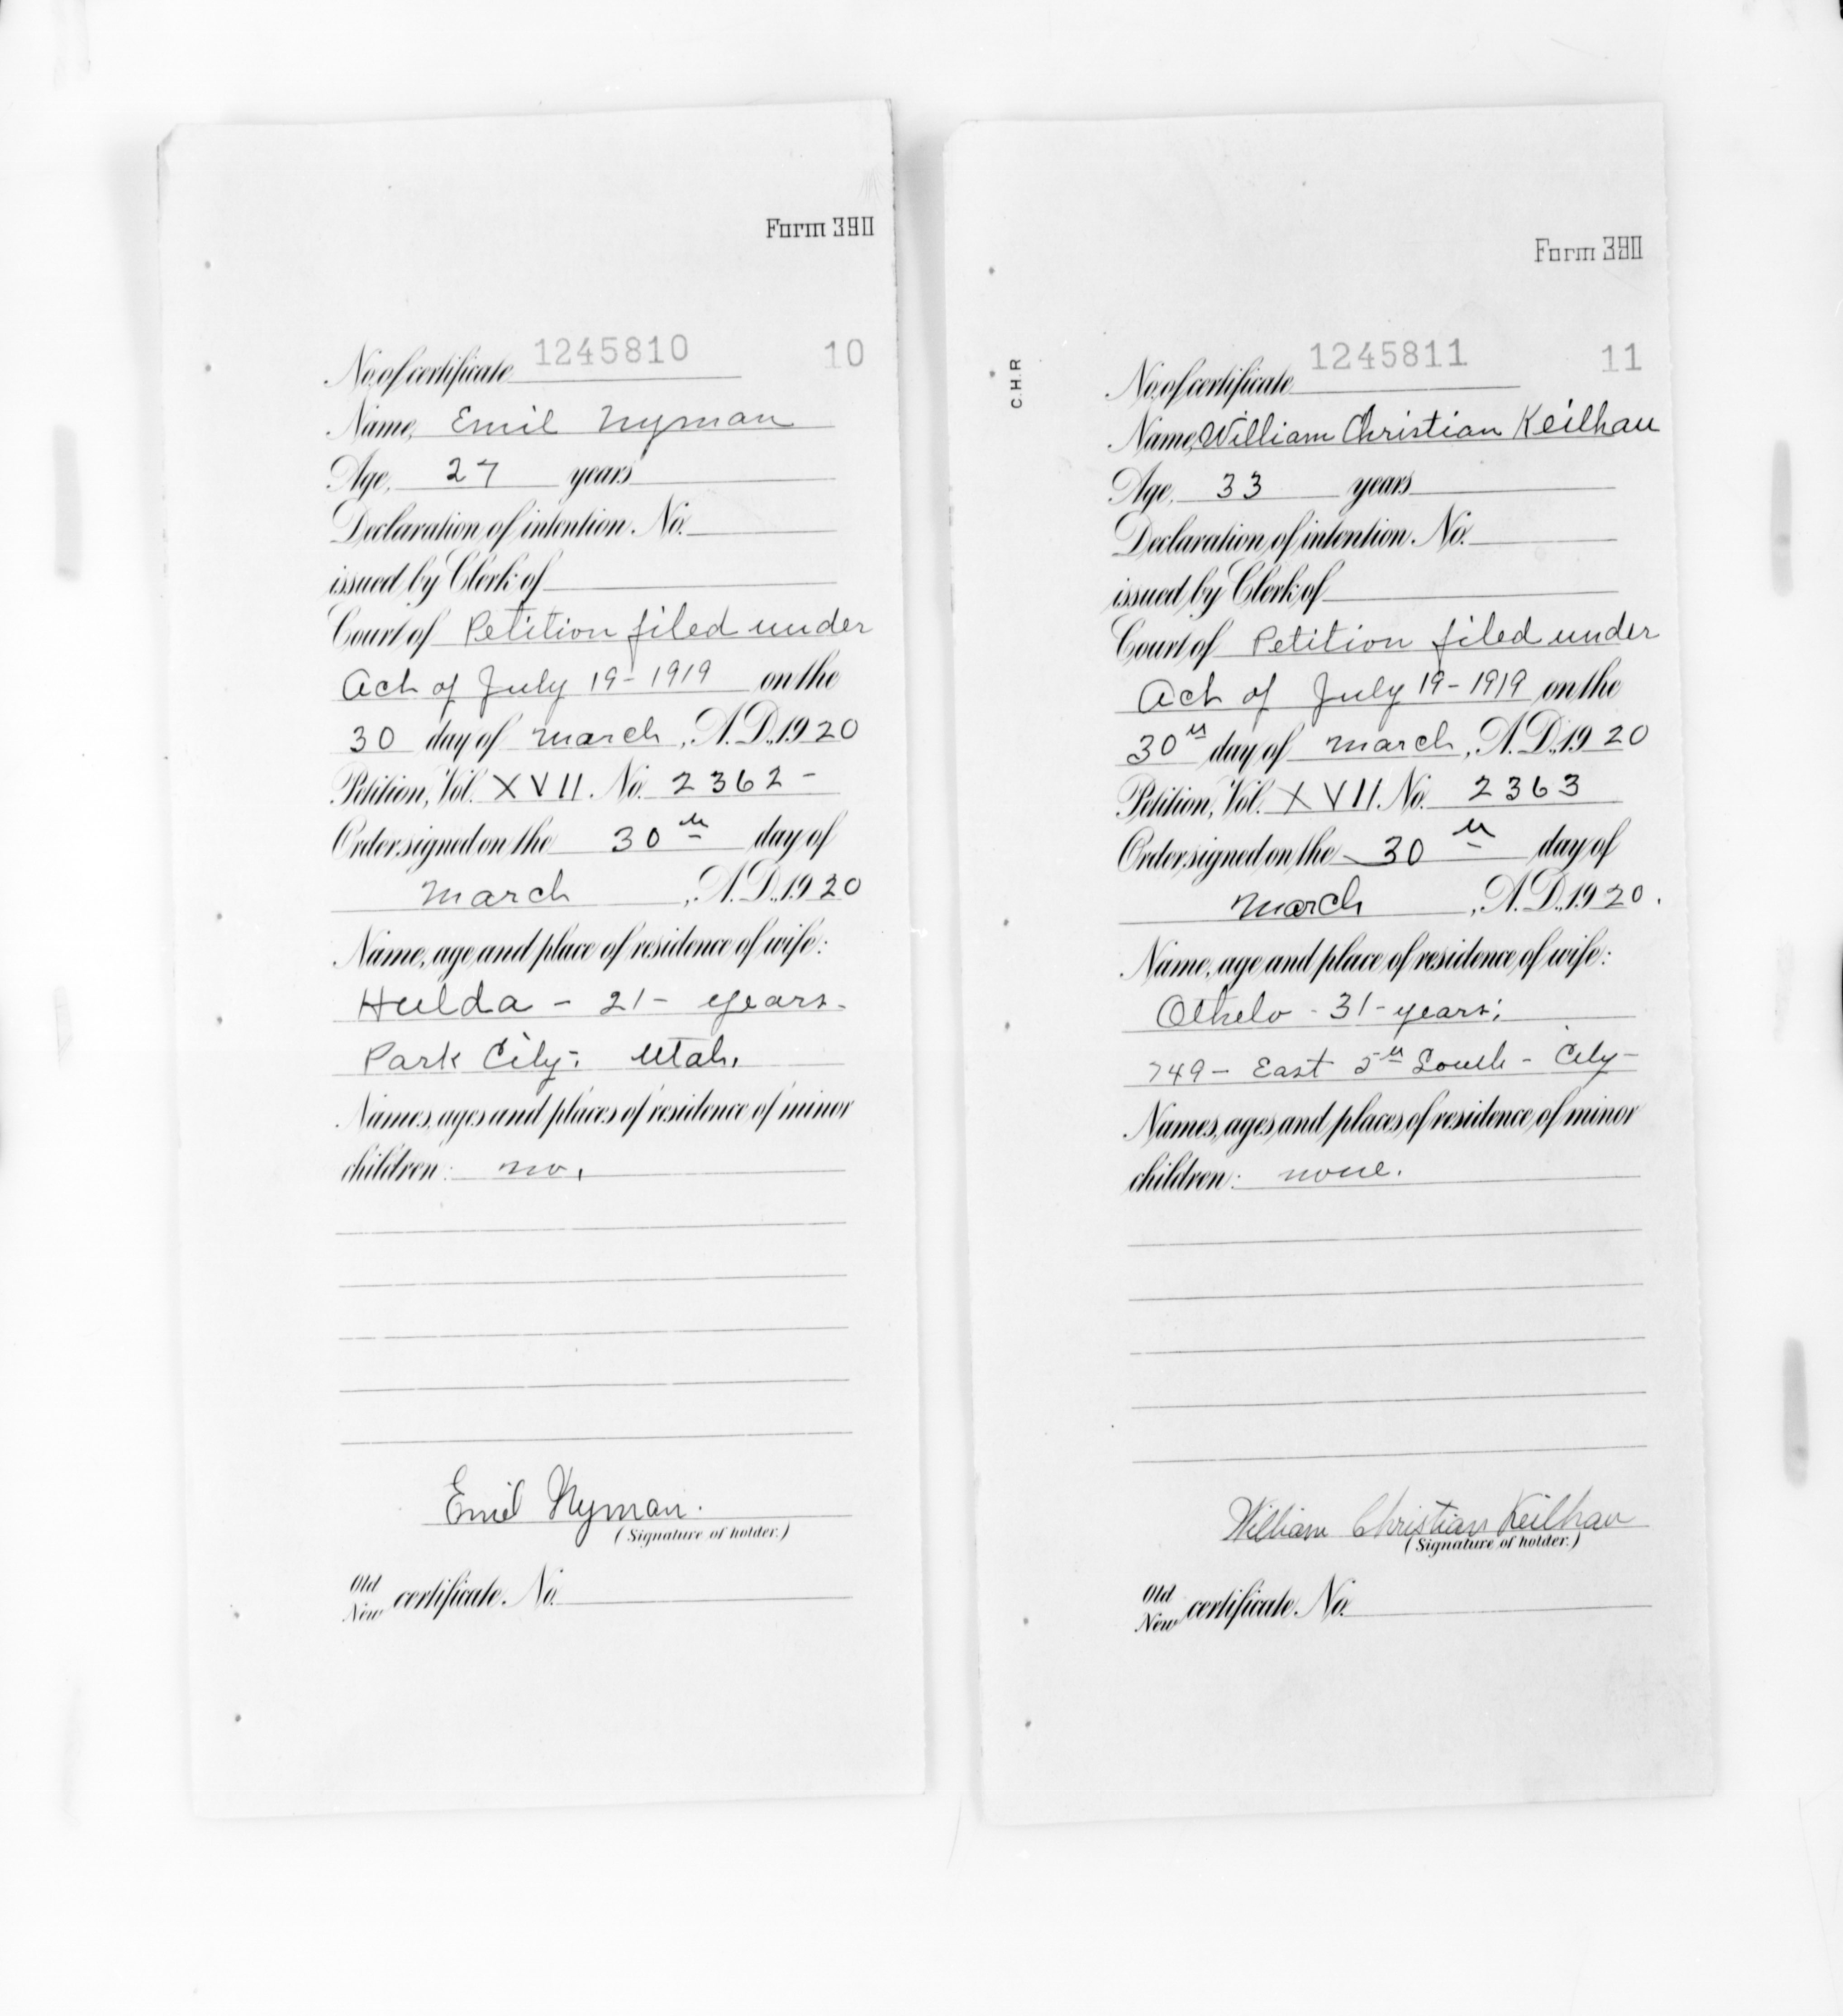 Form 390
No. of certificate 1245810 10
Name, Emil Nyman
Age, 27 years
Declaration of intention. No.
issued by Clerk of
Court of Petition filed under
Act of July 19-1919 on the
30 day of March, A.D. 1920
Petition, Vol. XVII. No. 2362-
Order signed on the 30th day of
March, A.D. 1920
Name, age and place of residence of wife:
Hulda - 21 - years-
Park City, Utah.
Names, ages and places of residence of minor
children: no.
Emil Nyman.
(Signature of holder.)
Old
New certificate. No.
Form 390
C.H.R
No. of certificate 1245811 11
Name, William Christian Keilhau
Age, 33 years
Declaration of intention. No.
issued by Clerk of
Court of Petition filed under
Act of July 19-1919 on the
30th day of March, A.D. 1920
Petition, Vol. XVII. No. 2363
Order signed on the 30th day of
March, A.D. 1920.
Name, age and place of residence of wife:
Othelo - 31 - years;
749 - East 5th South - City-
Names, ages and places of residence of minor
children: none.
William Christian Keilhau
(Signature of holder.)
Old
New certificate. No.